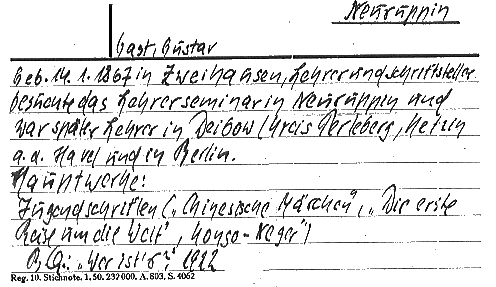 Neuruppin
Gast, Gustav
Geb. 14.1.1867 in Zweihausen, Lehrer und Schriftsteller
besuchte das Lehrerseminar in Neuruppin und
war später Lehrer in Deibow (Kreis Perleberg, Ketzin
a.d. Havel und in Berlin.
Hauptwerke:
Jugendschriften („Chinesische Märchen", „Die erste
Reise um die Welt", Kongo-Neger")
B.Q.: „Wer ist's?" 1922
Reg. 10. Stichnote. 1. 50. 232000. A. 803. S. 4062